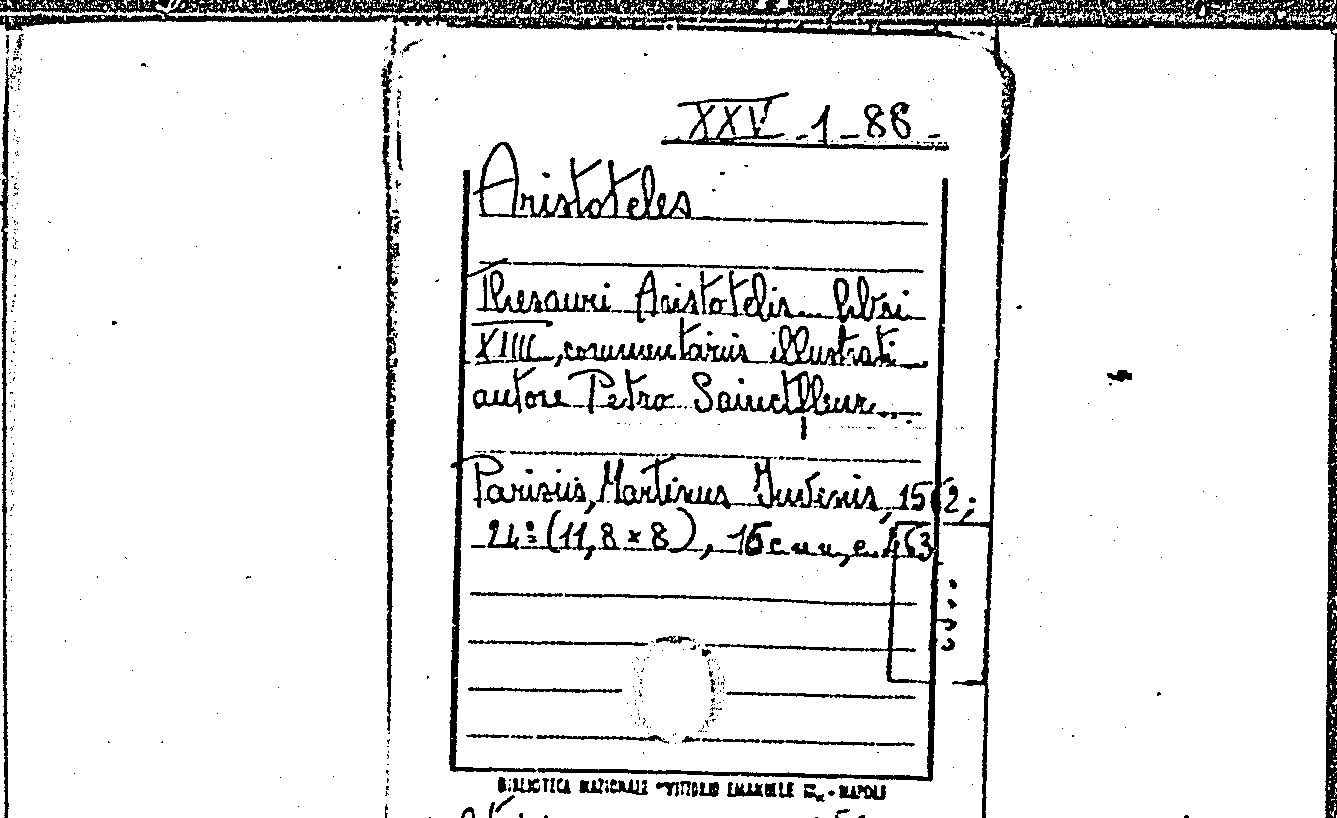 XXV-1-88-
Aristoteles
Thesauri Aristotelis libri
XIIII, commentariis illustrati
autore Petro Sainctfleur
Parisiis, Martinus Juvenis, 1562;
24º (11,8 x 8), 16 c. nn, c. 463
BIBLIOTECA NAZIONALE "VITTORIO EMANUELE III" - NAPOLI